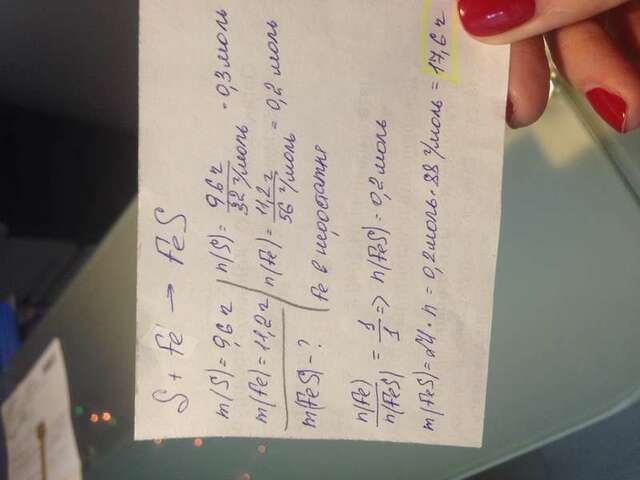 S + Fe → FeS
m(S) = 9,6 г
m(Fe) = 11,2 г
m(FeS) - ?
n(S) = 9,6 г / 32 г/моль = 0,3 моль
n(Fe) = 11,2 г / 56 г/моль = 0,2 моль
Fe в недостатке
n(Fe) / n(FeS) = 1 / 1 => n(FeS) = 0,2 моль
m(FeS) = M · n = 0,2 моль · 88 г/моль = 17,6 г